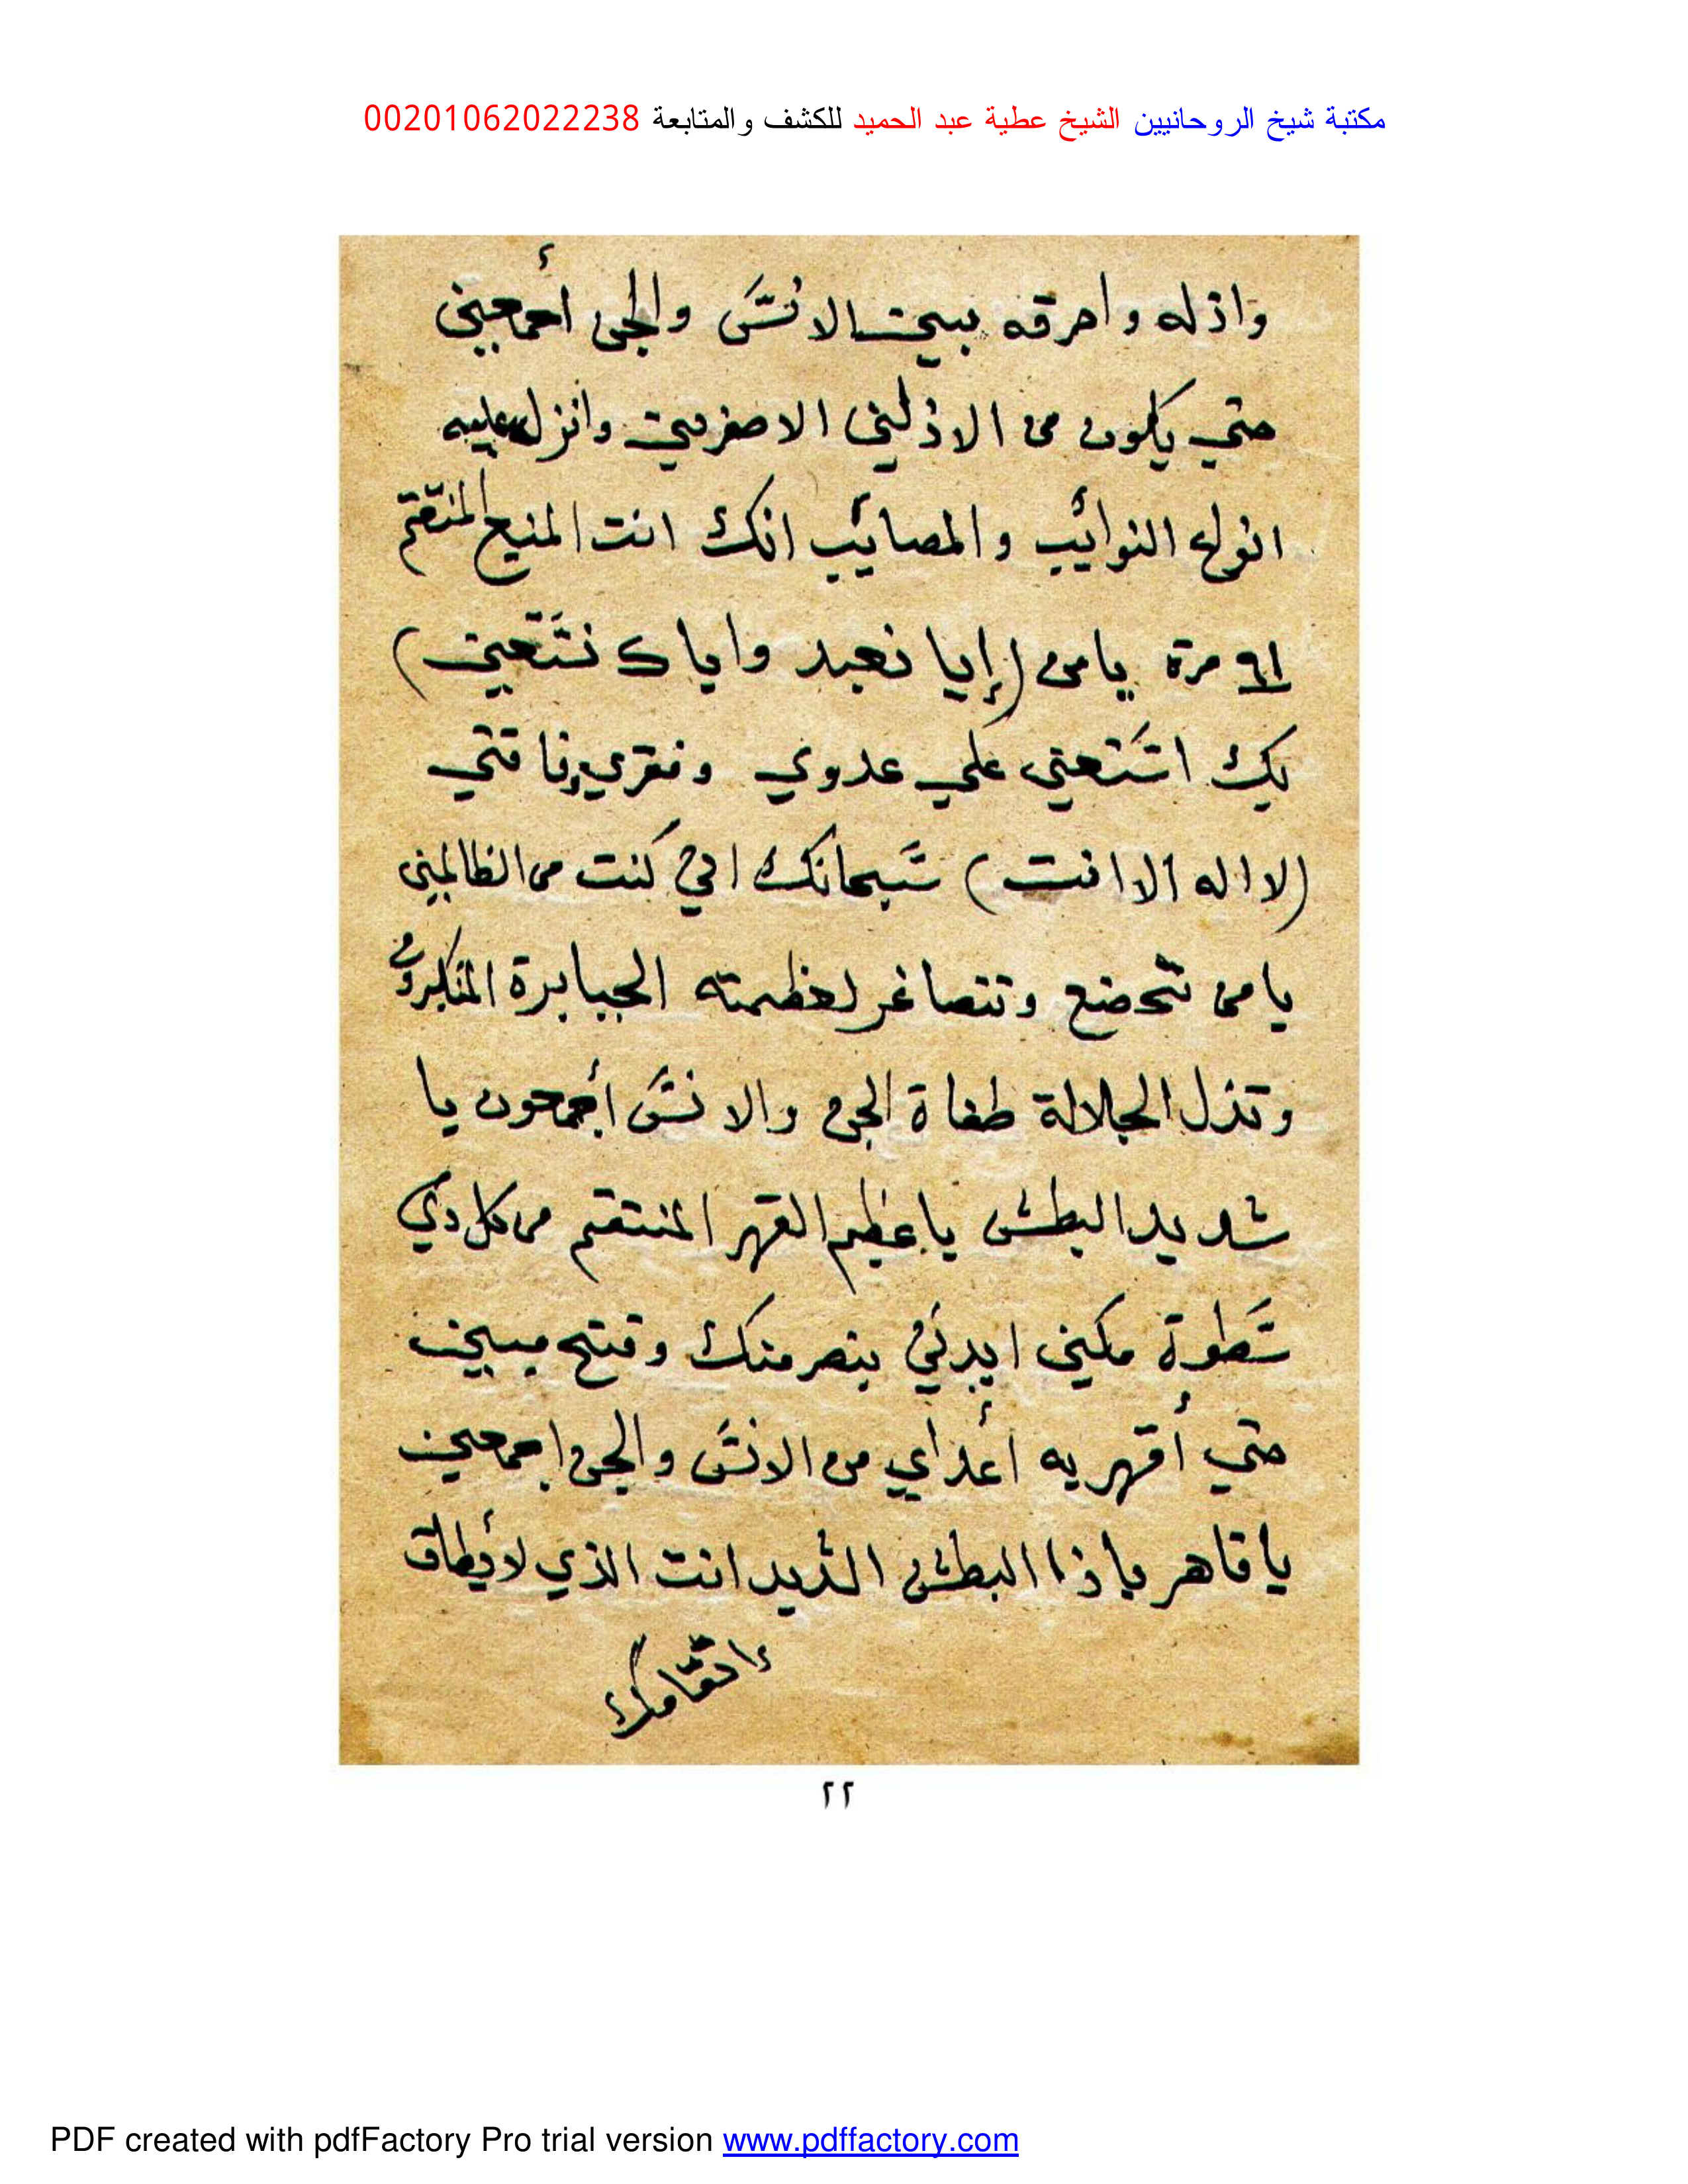 مكتبة شيخ الروحانيين الشيخ عطية عبد الحميد للكشف والمتابعة 00201062022238
واذله واحرقه ببين الانس والجن أجمعين
حتي يكون من الاذلين الاصغرين وانزل عليه
انواع النوائب والمصائب انك انت المنيع المنتقم
٦١ مرة يامن (إيا نعبد واياك نستعين)
بك استعين علي عدوي وفقري وفاقتي
(لا اله الا انت) سبحانك اني كنت من الظالمين
يامن تخضع وتتصاغر لعظمته الجبابرة المتكبرون
وتذل الجلالة طغاة الجن والانس أجمعون يا
شديد البطش يا عظيم القهر المنتقم من كل ذي
سطوة مكني ايدني بنصر منك وفتح مبين
حتي أقهر به أعداي من الانس والجن اجمعين
يا قاهر يا ذا البطش الشديد انت الذي لا يطاق
انتقامك
٢٢
PDF created with pdfFactory Pro trial version www.pdffactory.com